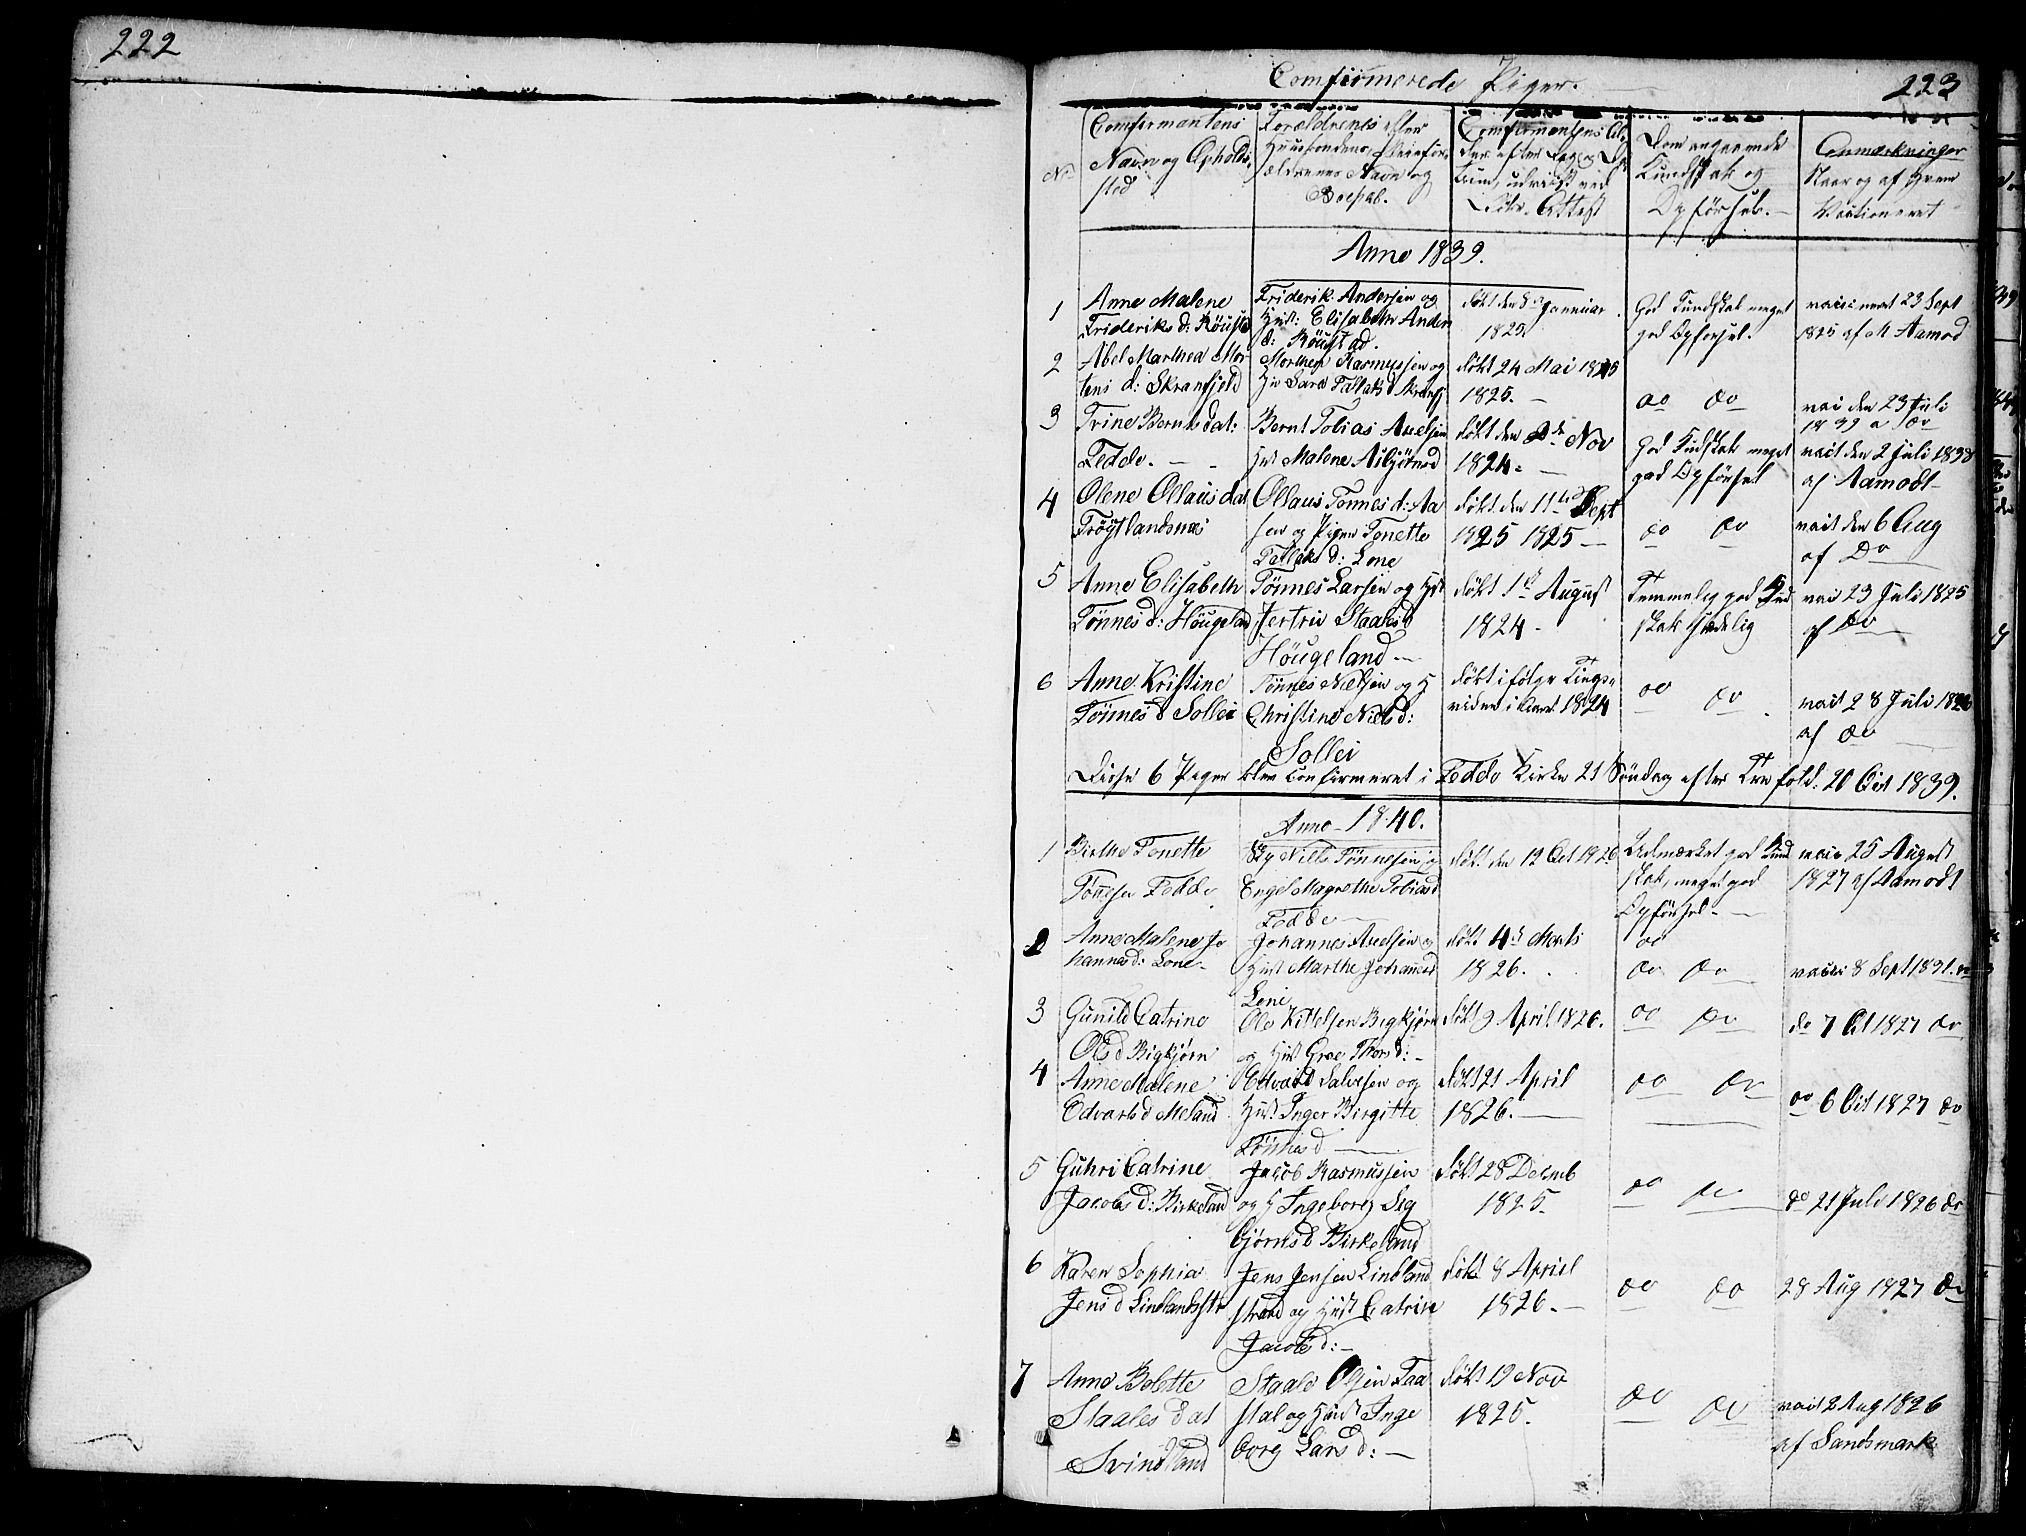 222
Comfirmerede Piger.
223
No
Comfirmantens
Navn og Opholds
sted
Forældrenes eller
Huusbondens, Pleiefor,
ældrenes Navn og
Boepæl.
Comfirmantens Al,
der efter Dag og Da,
tum, udviist ved
Døbe Attest
Dom angaaende
Kundskab og
Opførsel.
Anmærkninger
Naar og af Hvem
Vaccioneret
Anno 1839.
1
Anne Malene
Frideriks d: Røustad
Friderik Andersen og
Hust: Elisabeth Anders
d: Røustad.
døbt den Jannuar
1825.
God Kundskab meget
god Opførsel.
vaccineret 23 Sept
1825 af M Aamod
2
Abel Marthea Mor
tens d: Skranfjeld
Morthen Rasmussen og
Hu Sara Tallaks d Skranfj
døbt 24 Mai 1825
1825. —
do do
vac den 23 Juli
1839 a do
3
Trine Bernts dat:
Fedde. — -
Bernt Tobias Axelsen
Hust Malene Asbjørns d
døbt den 2de Nov
1824. —
God Kundskab meget
god Opførsel
vacc den 2 Juli 1838
af Aamodt
4
Olene Ollaus dat
Frøytlandsnæs
Ollaus Tønnes d: Aa
sen og Pigen Tonette
Tallaks d: Lone
døbt den 11te Sept
1825 1825 —
do do
vacc den 6 Aug
af Do
5
Anne Elisabeth
Tønnes d: Høugeland
Tønnes Larsen og Hust
Jertru Staales d
Høugeland —
døbt 1ste August
1824 -
Temmelig god Kund
skab sædelig
vacc 23 Juli 1825
af Do
6
Anne Kristine
Tønnes d Sollei
Tønnes Nielsen og H
Christine Niels d:
Sollei
døbt ifølge Tings,
vidne i Aaret 1824
do do
vacc 28 Juli 1826
af do
Disse 6 Piger blev Confirmeret i Fedde Kirke 21 Søndag efter Trefold. 20 Oct 1839.
Anno 1840.
1
Birthe Tonette
Tønnesen Fedde
Niels Tønnessen og
Engel Magrethe Tobias d
Fedde
døbt den 12 Oct 1826
Udmærket god Kund
skab, meget god
Opførsel. —
vacc 25 August
1827 af Aamodt
2
Anne Malene Jo
hannes d: Lone -
Johannes Axelsen og
Hust Marthe Johannes d
Lone
døbt 4de Marts
1826.
do
do do
vacc 8 Sept 1831.
3
Gunild Catrine
Ols d Bigkjørn
Ole Kittelsen Bigkjørn
og Hust Groe Thors d: -
døbt 9 April 1826.
do do
do 7 Oct 1827 do
4
Anne Malene
Edvarts d Meland
Edvart Salvesen og
Hust Inger Birgitte
Tønnes d
døbt 21 April
1826. —
do do
do 6 Oct 1827 do
5
Guhri Catrine
Jacobs d: Birkeland
Jacob Rasmussen
og H Ingeborg Sig
bjørns d Birkeland
døbt 28 Decmb
1825.
do do
do 21 Juli 1826 do
6
Karen Sophia
Jens d Lindlandsstr
Jens Jensen Lindland
strand og Hust Catrine
Jacobs d: -
døbt 8 April
1826. —
do do
28 Aug 1827 do
7
Anne Bolette
Staales dat
Svindland
Staale Olsen Faa
stal og Hust Inge
borg Lars d: —
døbt 19 Nov
1825.
do do
vacc 2 Aug 1826
af Sandsmark